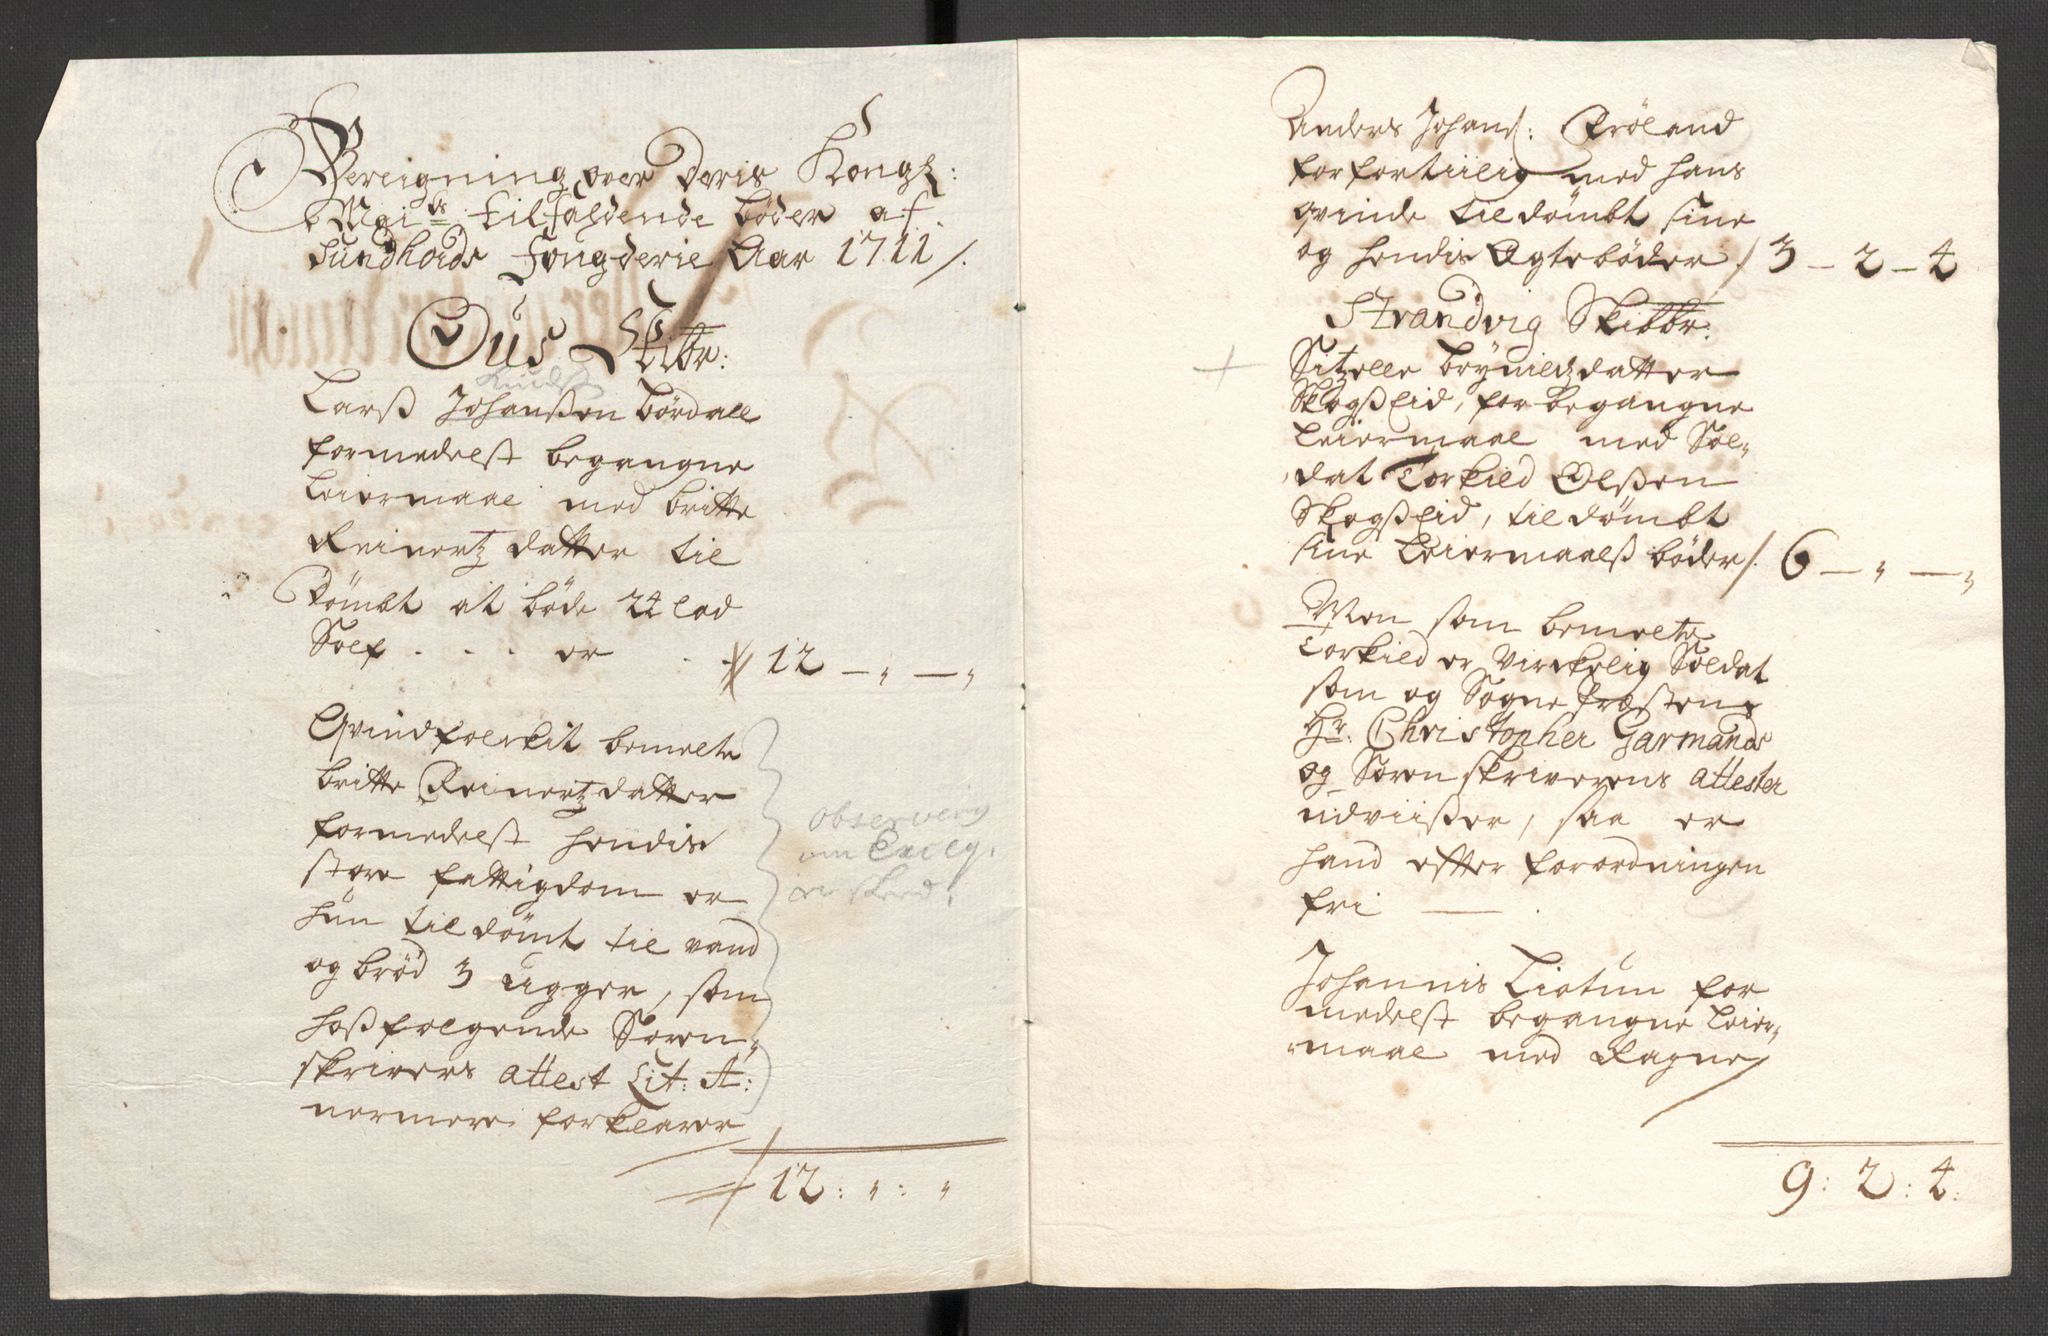 Bereigning over deris Kongl:
Mai.ts tilfaldende bøder af
Sundhords fougderie Aar 1711/.
Ous Skibr:
Knudß
Larß Johanßen børdall
formedelst begangne
Leiermaal med britte
Reinertz datter til
dømbt at bøde 24 lod
Sølf . . . er . . 12 – „ – „
Qvindfolckit bemelte
britte Reinertzdatter
formedelst hendis
store fattigdom er
hun tildømt til vand
og brød 3 Ugger, som
hoßfølgende Soren-
skrivers attest Lit: A:
nermere forklarer
observeris
om Execq.
er skeed.
12 : „ : „
Anders Johanß: Røland
for fortiilig med hans
qvinde tildømbt sine
og hendis Ægtebøder / 3 – 2 – 4
Strandvig Skibbr:
Sitzelle brynildzdatter
Skogßeid, for begangne
Leiermaal med Sol-
dat Torkild Olßen
Skogßeid, tildømbt
sine Leiermaalß bøder /. 6 – „ – „
Men som bemelte
Torkild er virckelig Soldat
som og Sogne Præstens
Hr. Christopher Garmands
og Sorenskriverens attester
udviißer, saa er
hand efter forordningen
fri — .
Johannis Liotun for
medelst begangne Leier-
maal med Ragne/
9 : 2 : 4.